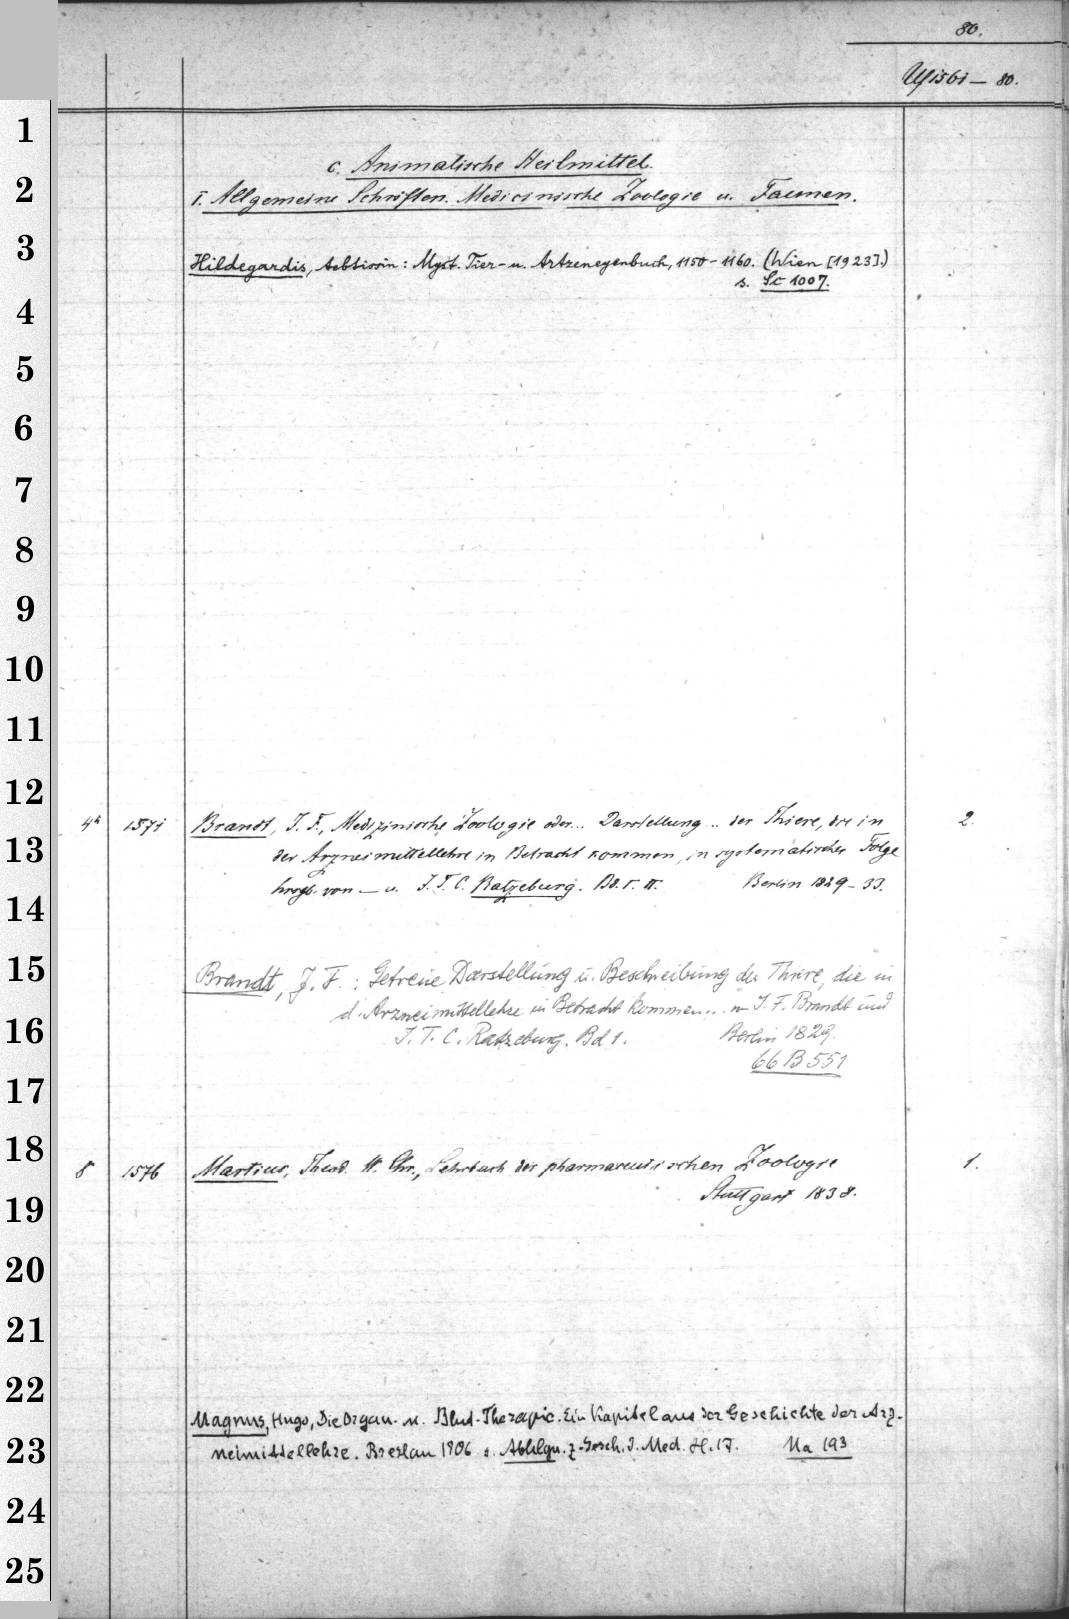 80.
Uf 1561 – 80.
c. Animalische Heilmittel.
I. Allgemeine Schriften. Medicinische Zoologie u. Faunen.
Hildegardis, Aebtissin: Myst. Tier- u. Artzeneyenbuch, 1150-1160. (Wien [1923].)
s. Sc 1007.
4° 1571 Brandt, J. F., Medizinische Zoologie oder... Darstellung... der Thiere, die in 2.
der Arzneimittellehre in Betracht kommen, in systematischer Folge
hrsgb. von — u. J. T. C. Ratzeburg. Bd. I. II. Berlin 1829-33.
Brandt, J. F.: Getreue Darstellung u. Beschreibung der Thiere, die in
d. Arzneimittellehre in Betracht kommen... v. J. F. Brandt und
J. T. C. Ratzeburg. Bd 1. Berlin 1829.
66 B 551
8 1576 Martius, Theod. W. Chr., Lehrbuch der pharmaceutischen Zoologie 1.
Stuttgart 1838.
Magnus, Hugo, Die Organ- u. Blut-Therapie. Ein Kapitel aus der Geschichte der Arz-
neimittellehre. Breslau 1906 s. Abhlgn. z. Gesch. d. Med. H. 17. Ua 193
1
2
3
4
5
6
7
8
9
10
11
12
13
14
15
16
17
18
19
20
21
22
23
24
25